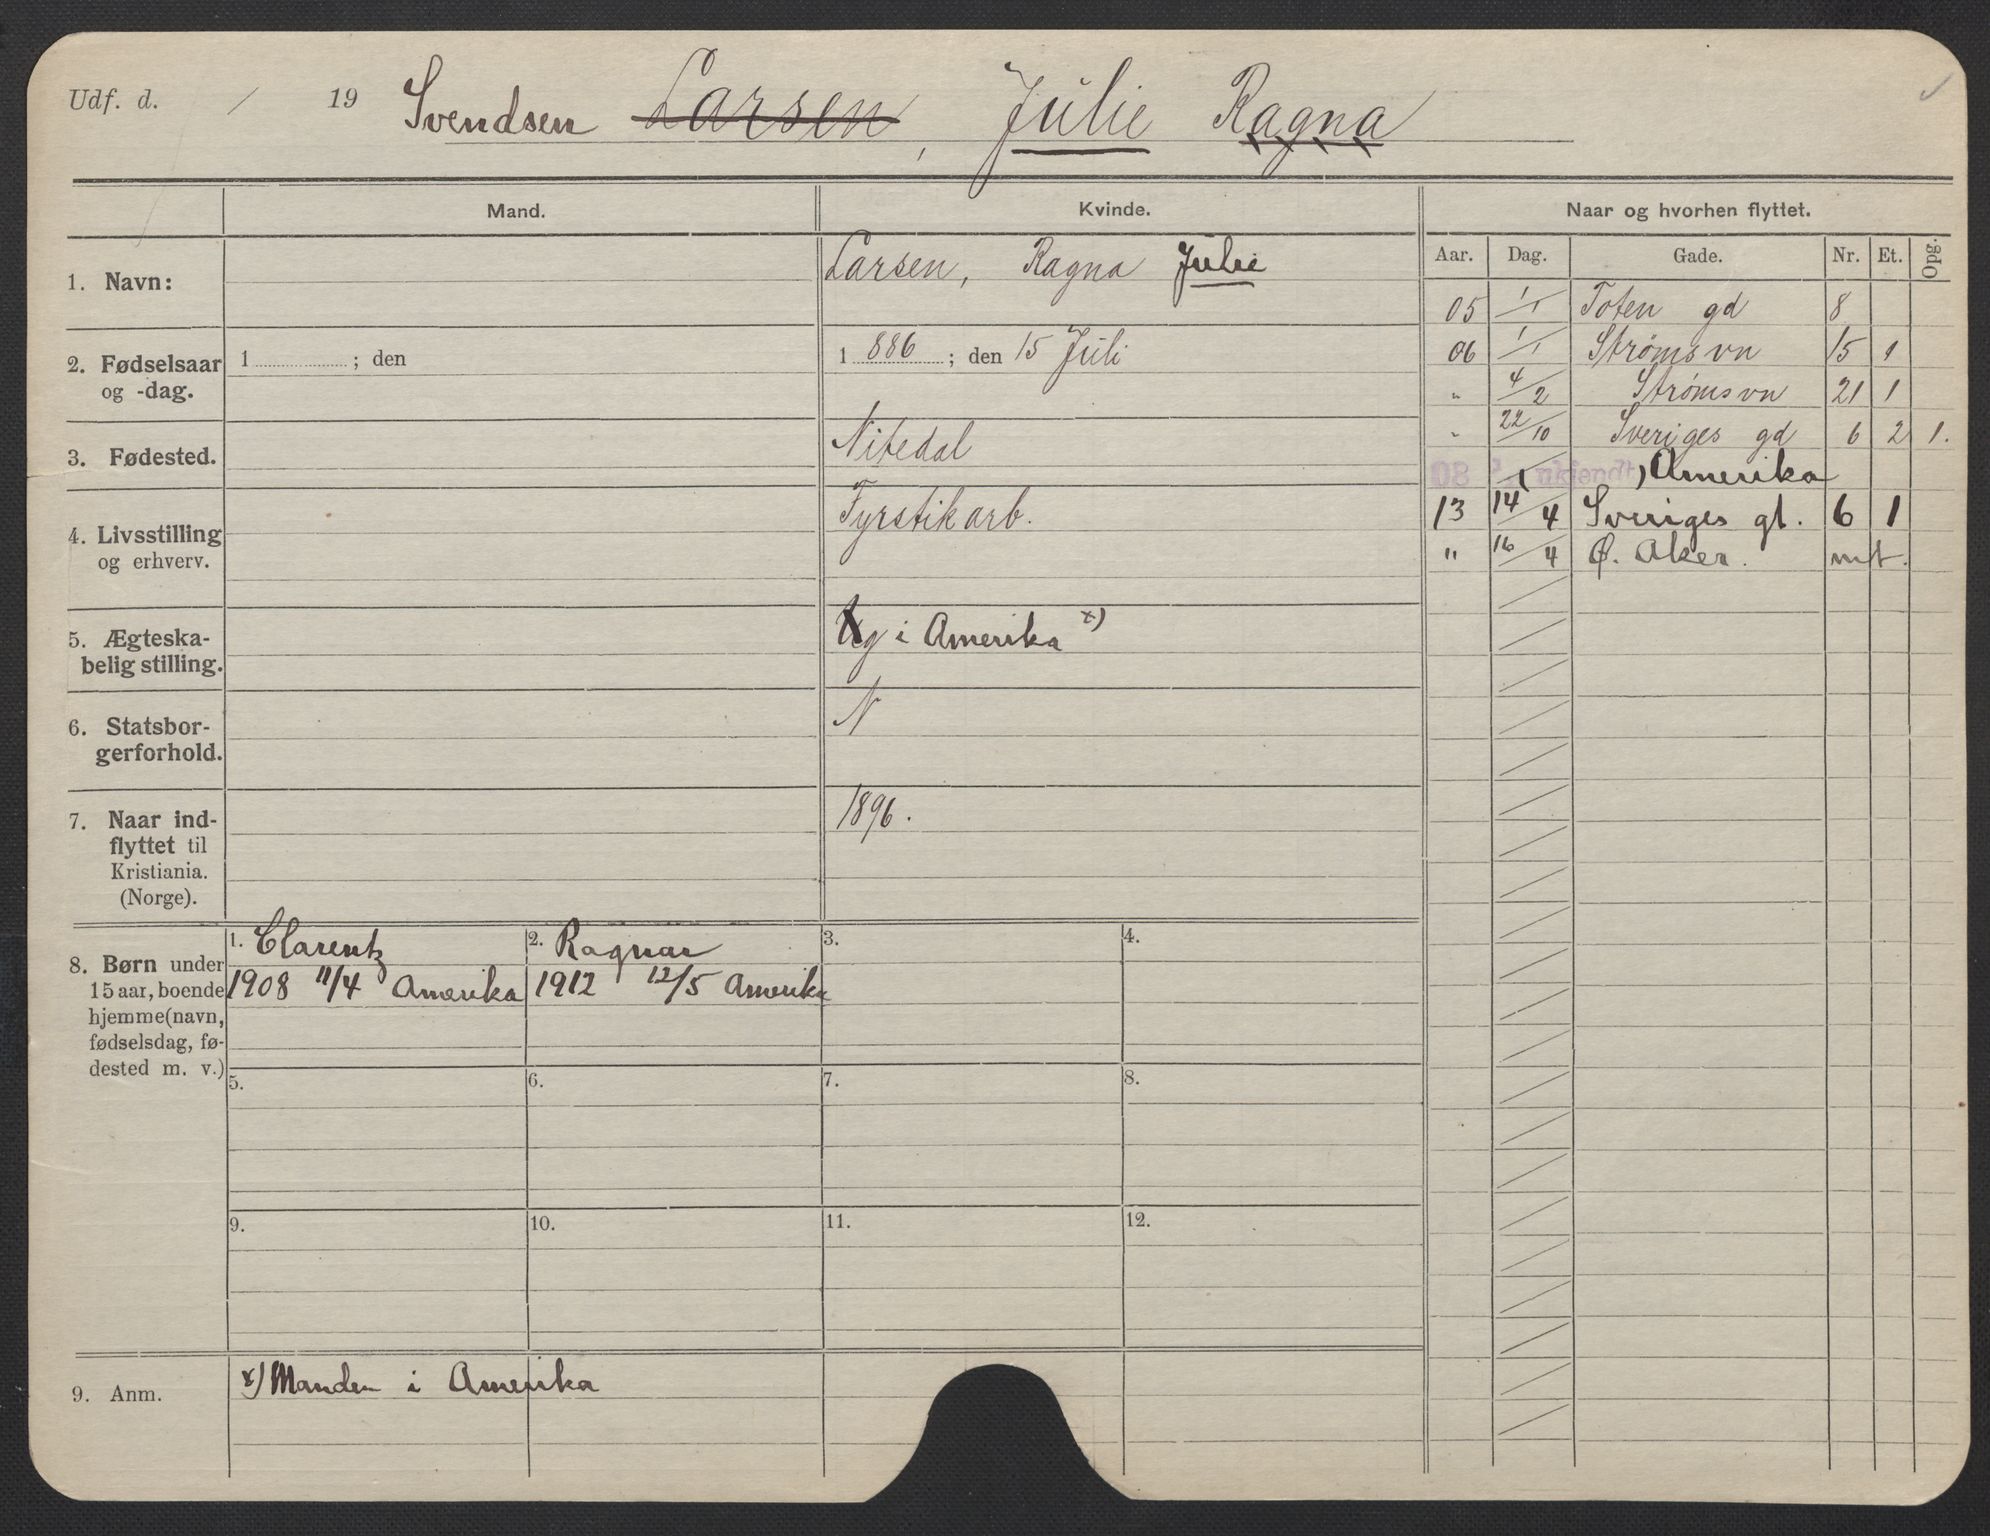 Udf. d. / 19 Svendsen Larsen, Julie Ragna
Mand. Kvinde. Naar og hvorhen flyttet.
Aar. Dag. Gade. Nr. Et. Opg.
1. Navn: Larsen, Ragna Julie
2. Fødselsaar
og -dag.
1 ; den
1 886 ; den 15 Juli
3. Fødested. Nitedal
4. Livsstilling
og erhverv.
Fyrstikarb.
5. Ægteska-
belig stilling.
g i Amerika x)
6. Statsbor-
gerforhold.
N
7. Naar ind-
flyttet til
Kristiania.
(Norge).
1896.
05 1/1 Toten gd 8
06 1/1 Strømsvn 15 1
" 4/2 Strømsvn 21 1
" 22/10 Sveriges gd 6 2 1.
08 ? (ukjendt) Amerika
13 14/4 Sveriges gt. 6 1
" 16/4 Ø. Aker. mt.
8. Børn under
15 aar, boende
hjemme (navn,
fødselsdag, fø-
dested m. v.)
1. Clarentz
1908 11/4 Amerika
2. Ragnar
1912 12/5 Amerika
3.
4.
5.
6.
7.
8.
9.
10.
11.
12.
9. Anm. x) Manden i Amerika